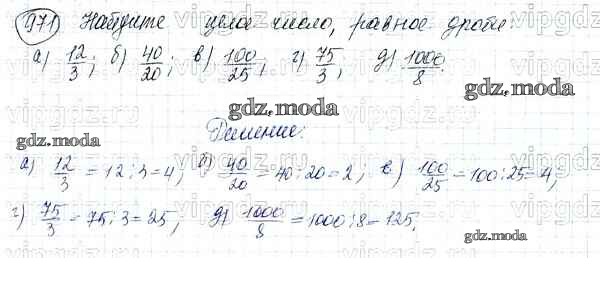 971 Найдите целое число, равное дроби:
а) 12/3; б) 40/20; в) 100/25; г) 75/3; д) 1000/8.
gdz.moda gdz.moda
gdz.moda
Решение:
а) 12/3 = 12:3=4; б) 40/20 = 40:20=2; в) 100/25 = 100:25=4,
г) 75/3 = 75:3=25, д) 1000/8 = 1000:8=125.
gdz.moda
vipgdz.ru